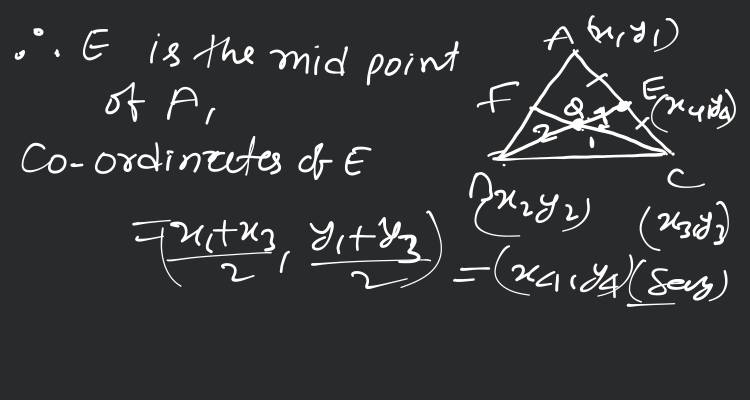 ∴ E is the mid point
of A,
Co-ordinates of E
= (x₁+x₃/2, y₁+y₃/2) = (x₄, y₄) (Say)
A (x₁, y₁)
F
E (x₄, y₄)
2
1
C
(x₂ y₂)
(x₃, y₃)